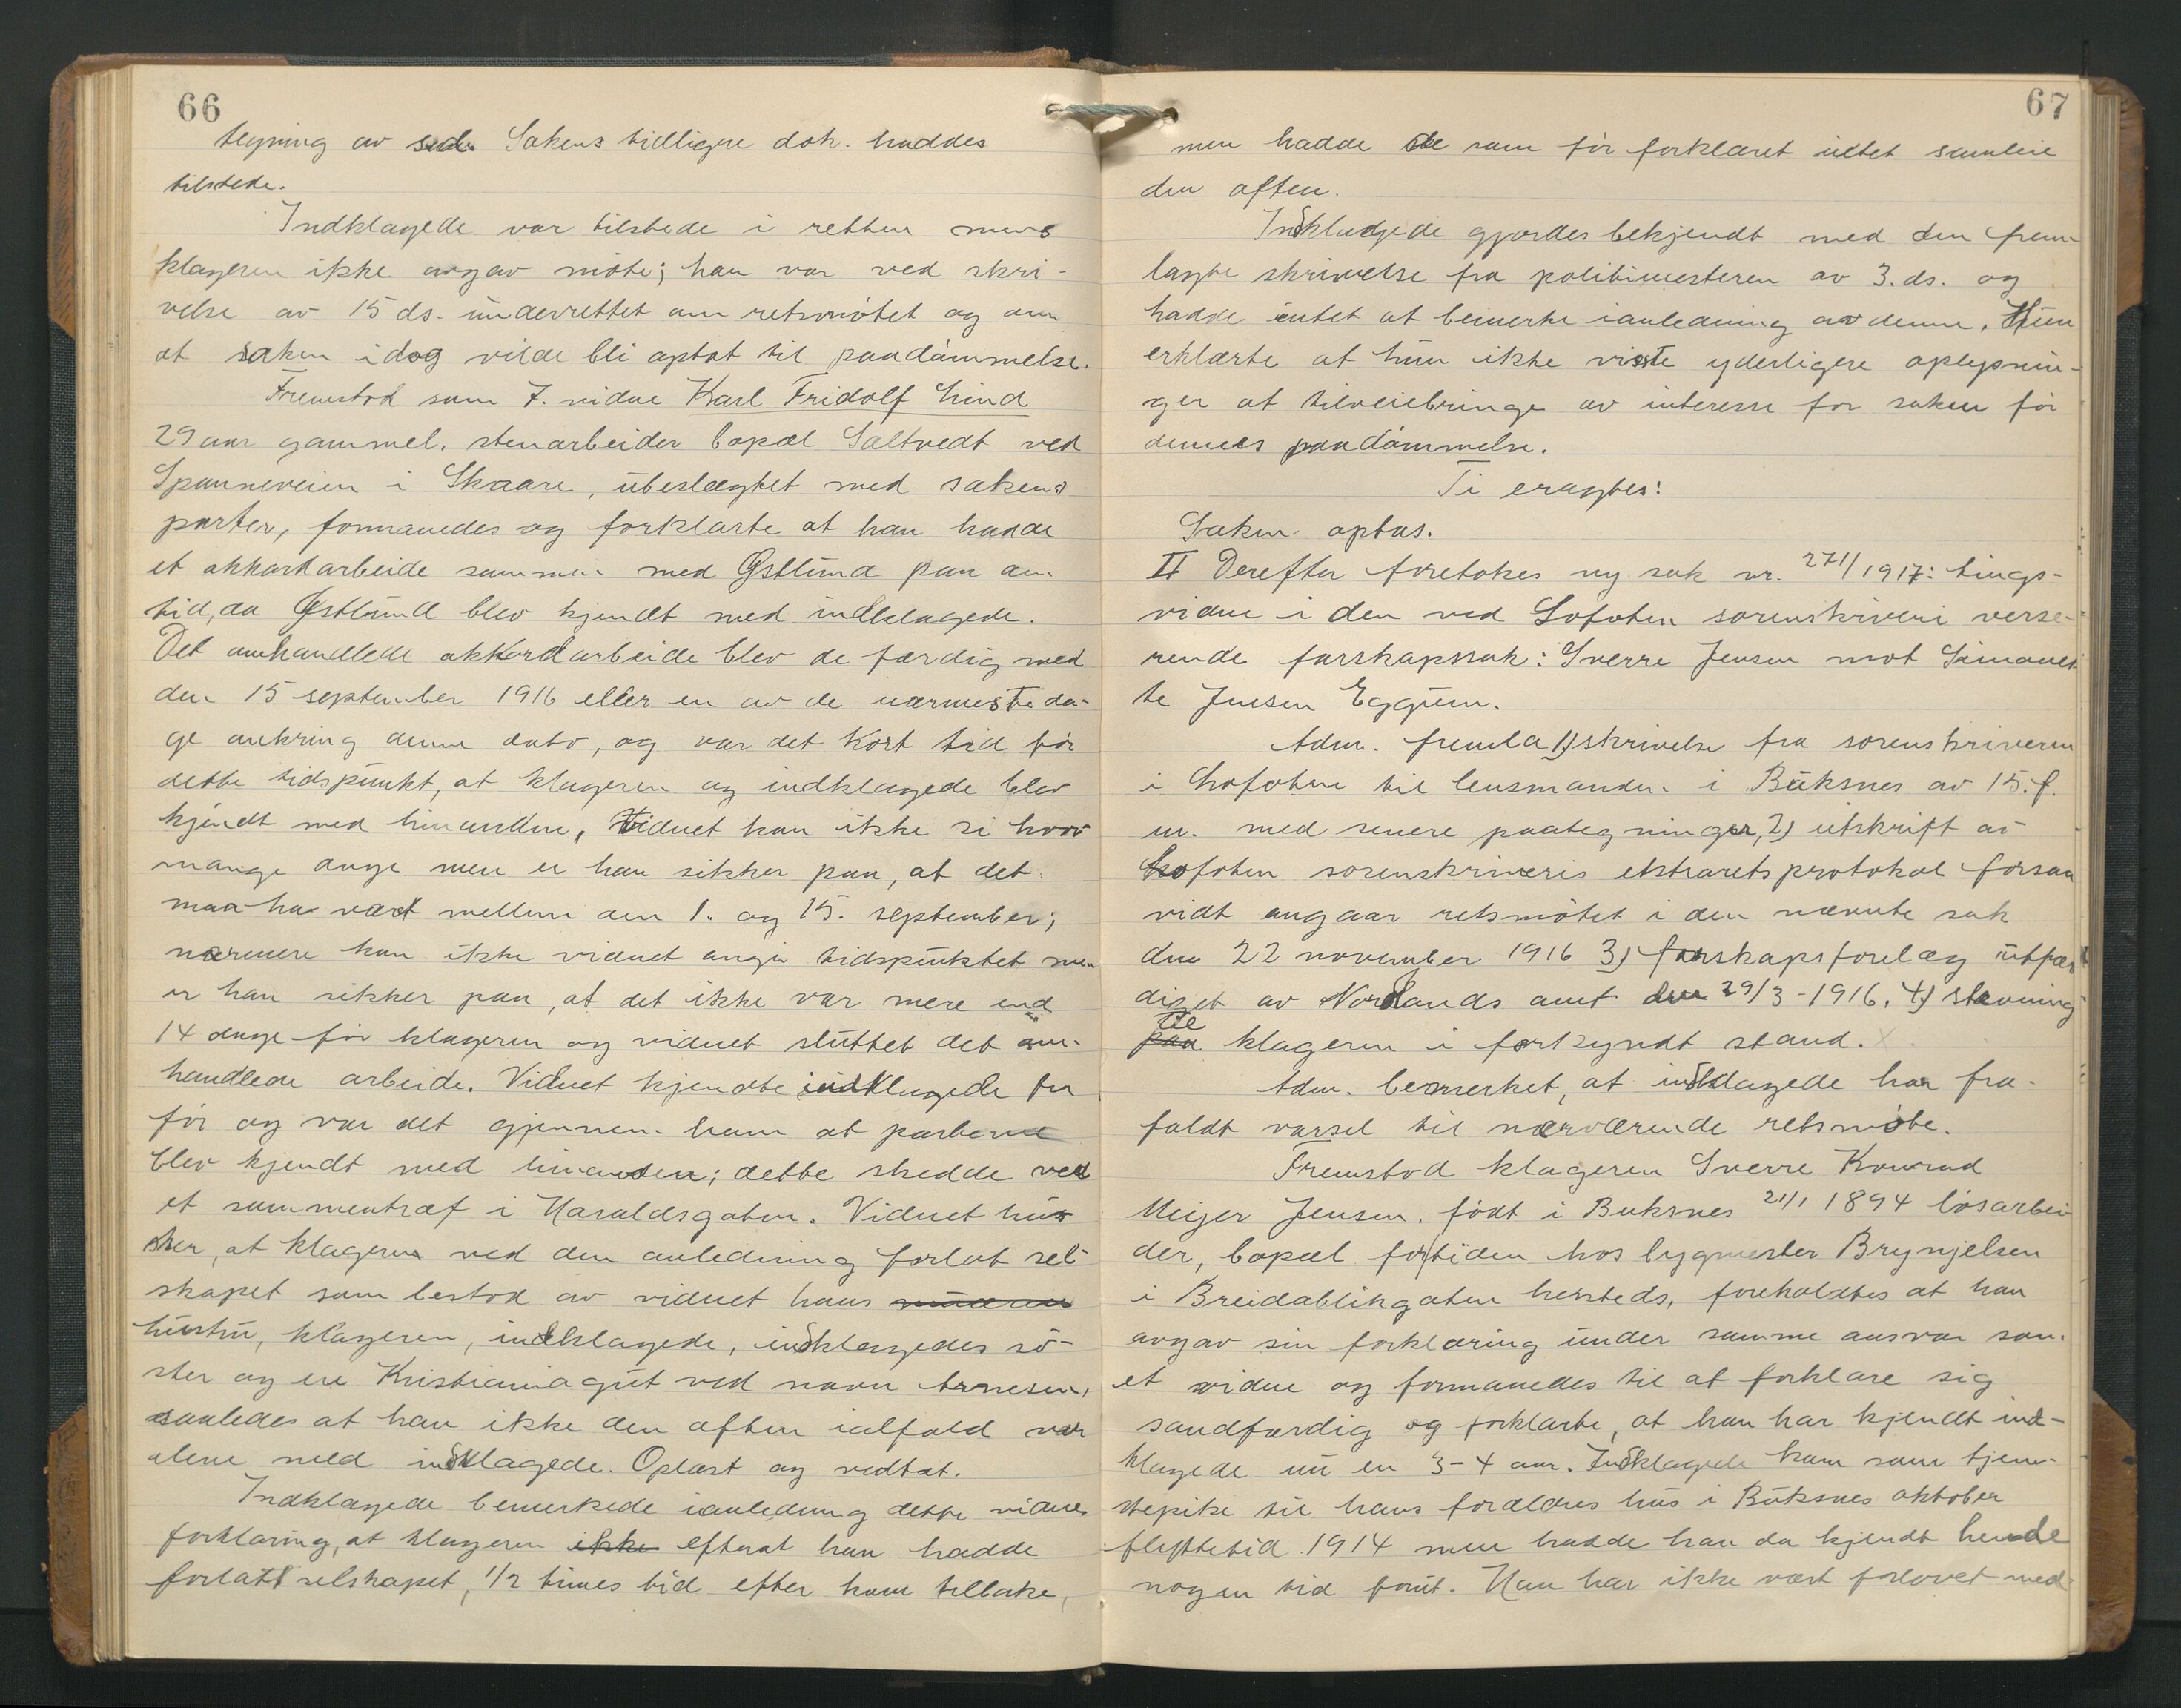 66
tegning av  Sakens tidligere dok. haddes
tilstede.
Indklagede var tilstede i retten mens
klageren ikke avgav møte; han var ved skri-
velse av 15 ds. underrettet om retsmøtet og om
at saken idag vilde bli optat til paadømmelse.
Fremstod som 7. vidne Karl Fridolf Lind
29 aar gammel, stenarbeider bopæl Saltvedt ved
Spanneveien i Skaare, ubeslægtet med sakens
parter, formanedes og forklarte at han hadde
et akkordarbeide sammen med Østlund paa den
tid, da Østlund blev kjendt med indklagede.
Det omhandlede akkordarbeide blev de færdig med
den 15 september 1916 eller en av de nærmeste da-
ge omkring denne dato, og var det kort tid før
dette tidspunkt, at klageren og indklagede blev
kjendt med hinanden, Vidnet kan ikke si hvor
mange dage men er han sikker paa, at det
maa ha vært mellem den 1. og 15. september;
nærmere kan ikke vidnet angi tidspunktet men
er han sikker paa, at det ikke var mere end
14 dage før klageren og vidnet sluttet det om-
handlede arbeide. Vidnet kjendte indklagede fra
før og var det gjennem ham at parterne
blev kjendt med hinanden; dette skedde ved
et sammentræf i Haraldsgaten. Vidnet hus-
ker, at klageren ved den anledning forlot sel-
skapet som bestod av vidnet hans
hustru, klageren, indklagede, indklagedes sø-
ster og en Kristianiagut ved navn Arnesen,
saaledes at han ikke den aften ialfald var
alene med indklagede. Oplæst og vedtat.
Indklagede bemerkede ianledning dette vidnes
forklaring, at klageren ikke efterat han hadde
forlatt selskapet, 1/2 times tid efter kom tilbake,
67
men hadde de som før forklaret intet samleie
den aften.
Indklagede gjordes bekjendt med den frem-
lagte skrivelse fra politimesteren av 3. ds. og
hadde intet at bemerke ianledning av denne. Hun
erklærte at hun ikke visste yderligere oplysnin-
ger at tilveiebringe av interesse for saken før
dennes paadømmelse.
Ti eragtes:
Saken optas.
II Derefter foretokes ny sak nr. 271/1917: tings-
vidne i den ved Lofoten sorenskriveri verse-
rende farskapssak: Sverre Jensen mot Simonet-
te Jensen Eggum.
Adm. fremla 1) skrivelse fra sorenskriveren
i Lofoten til lensmanden i Buksnes av 15. f.
m. med senere paategninger, 2) utskrift av
Lofoten sorenskriveris ekstraretsprotokol forsaa
vidt angaar retsmøtet i den nævnte sak
den 22 november 1916 3) farskapsforelæg utfær
diget av Nordlands amt den 29/3-1916, 4) stevning
paa til klageren i forkyndt stand. X
Adm. bemerket, at indklagede har fra-
faldt varsel til nærværende retsmøte.
Fremstod klageren Sverre Konrad
Meijer Jensen, født i Buksnes 21/1 1894 løsarbei
der, bopæl fortiden hos bygmester Brynjelsen
i Breidablikgaten hersteds, foreholdtes at han
avgav sin forklaring under samme ansvar som
et vidne og formanedes til at forklare sig
sandfærdig og forklarte, at han har kjendt ind-
klagede nu en 3-4 aar. Indklagede kom som tjene-
stepike til hans forældres hus i Buksnes oktober
flyttetid 1914 men hadde han da kjendt hende
nogen tid forut. Han har ikke vært forlovet med